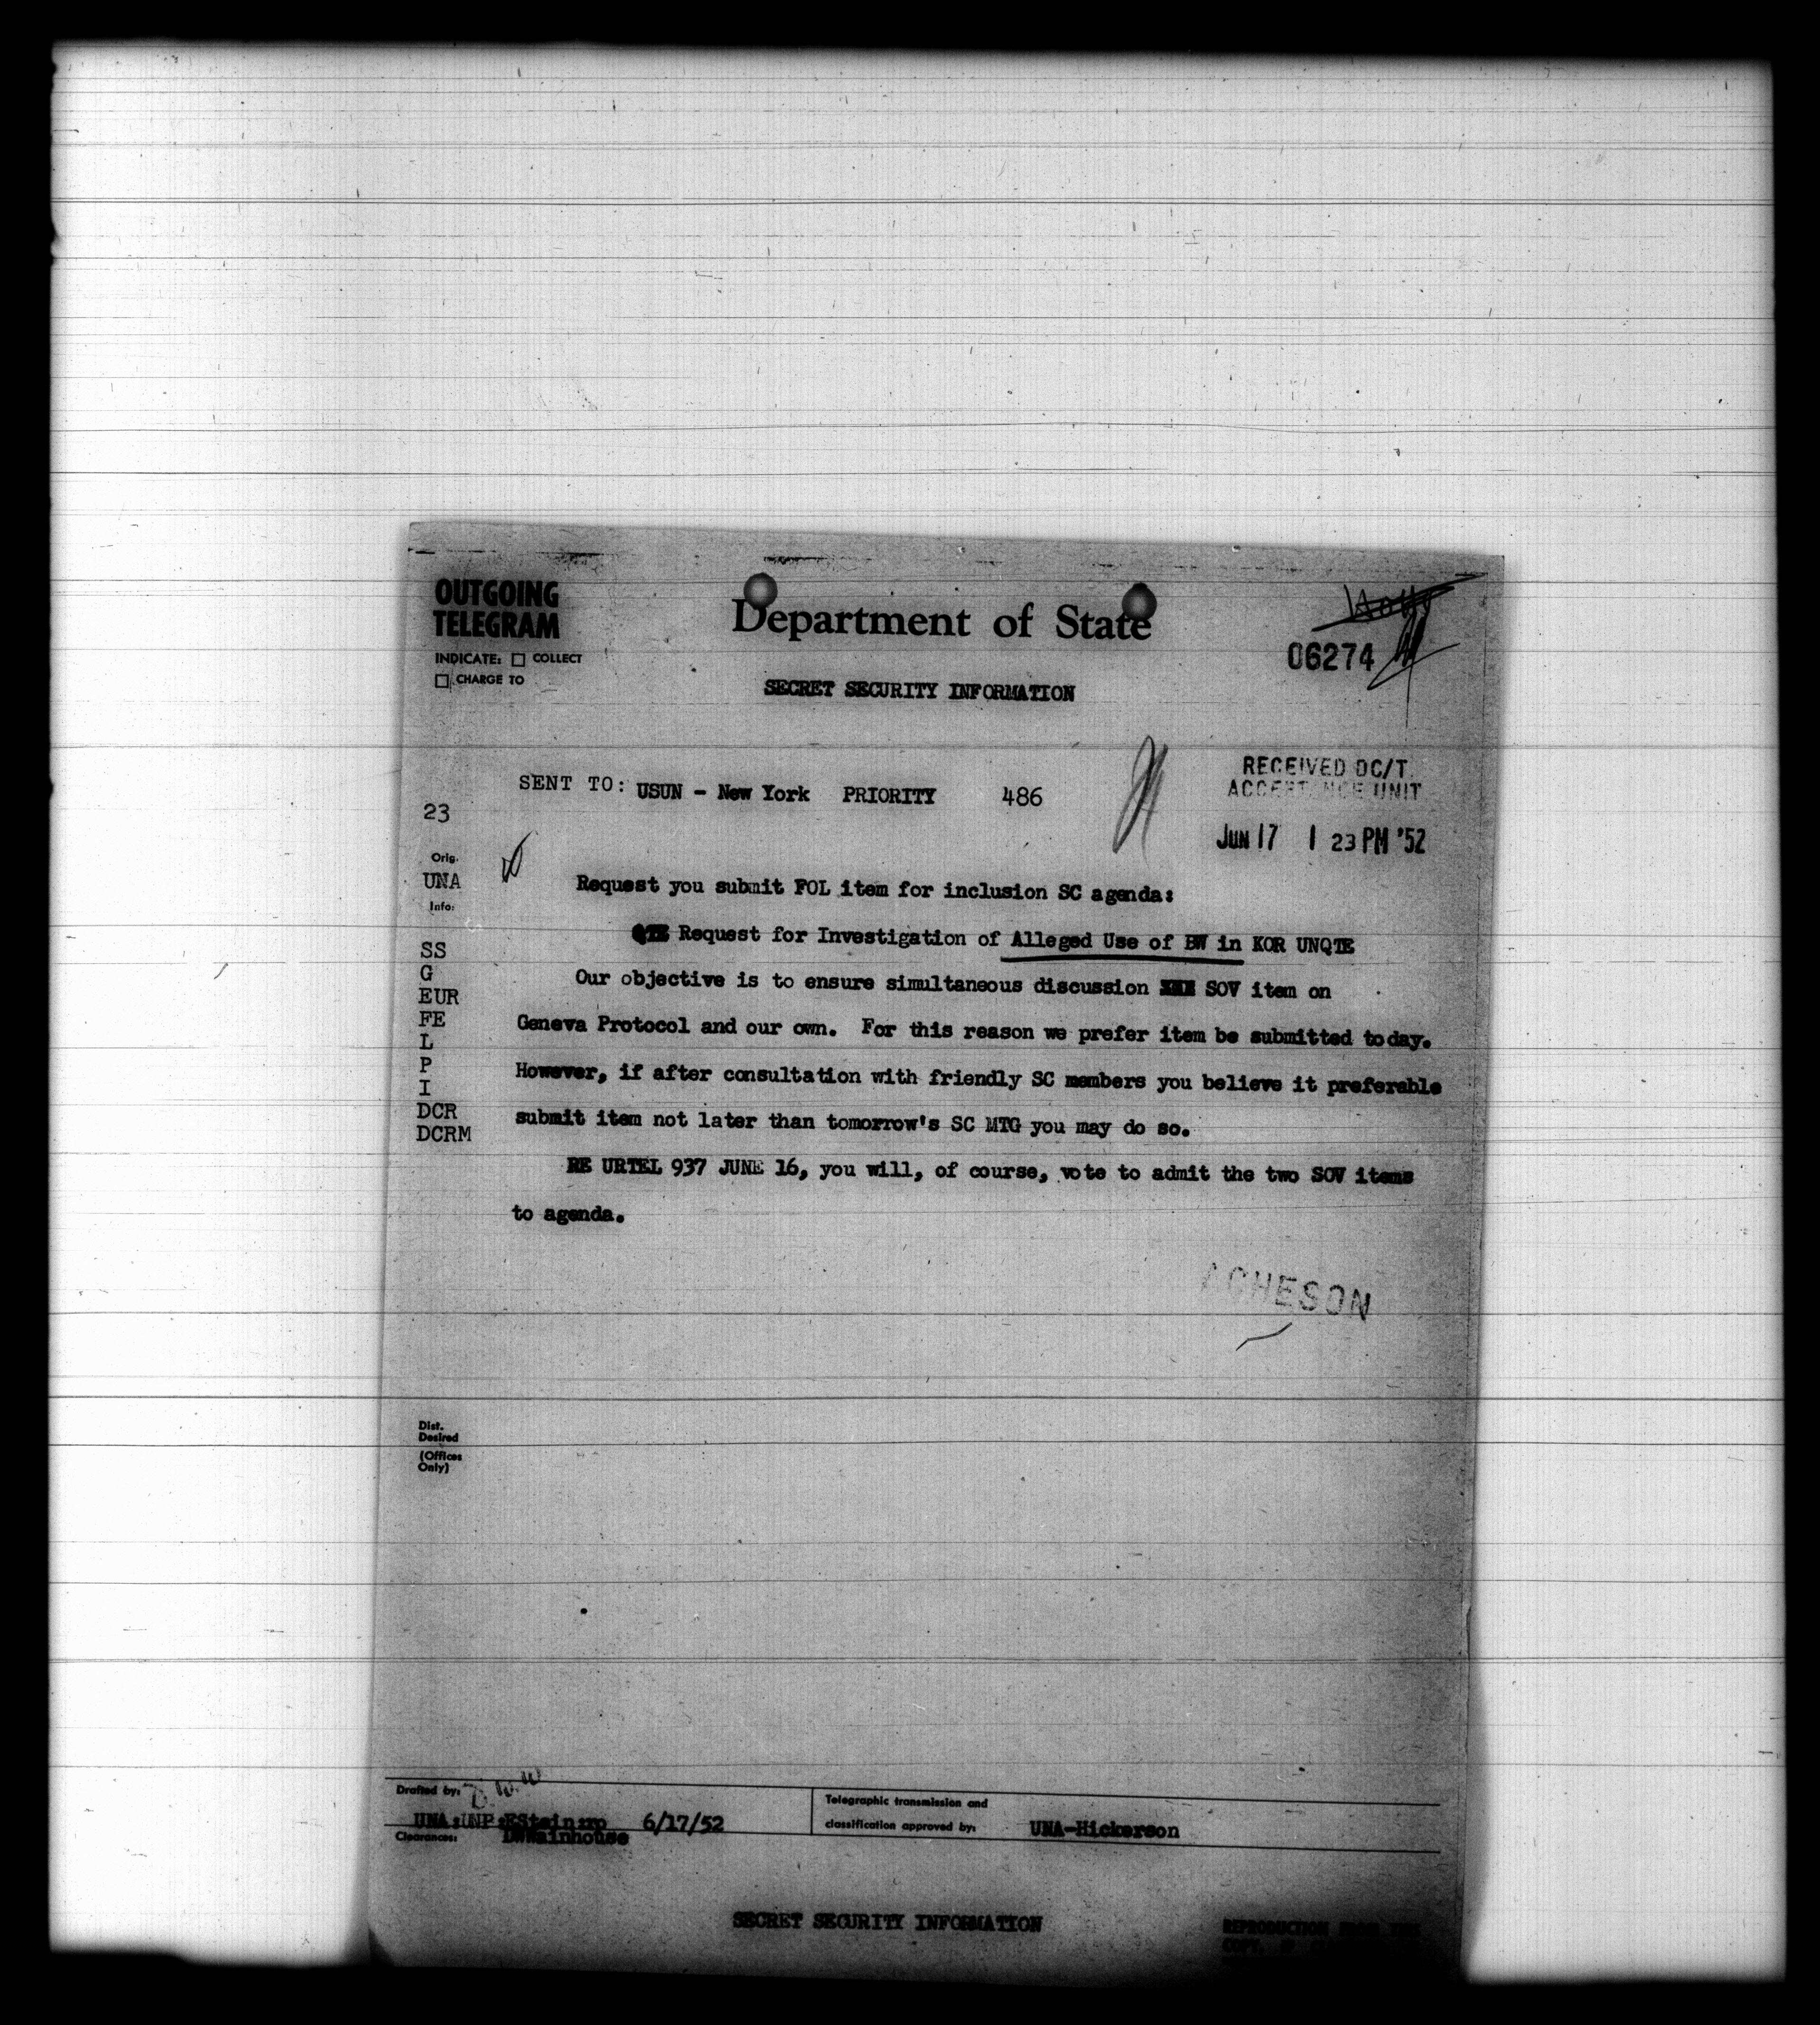 OUTGOING
TELEGRAM
INDICATE: ☐ COLLECT
☐ CHARGE TO
Department of State
06274
SECRET SECURITY INFORMATION
RECEIVED DC/T
ACCEPTANCE UNIT
JUN 17 1 23 PM '52
SENT TO: USUN - New York PRIORITY 486
23
Orig.
UNA
Info:
SS
G
EUR
FE
L
P
I
DCR
DCRM
Request you submit FOL item for inclusion SC agenda:
QTE Request for Investigation of Alleged Use of BW in KOR UNQTE
Our objective is to ensure simultaneous discussion XXX SOV item on
Geneva Protocol and our own. For this reason we prefer item be submitted today.
However, if after consultation with friendly SC members you believe it preferable
submit item not later than tomorrow's SC MTG you may do so.
RE URTEL 937 JUNE 16, you will, of course, vote to admit the two SOV items
to agenda.
ACHESON
Dist.
Desired
(Offices
Only)
Drafted by:
UNA:UNP:EStein:ro 6/17/52
Clearances: DWWainhouse
Telegraphic transmission and
classification approved by: UNA-Hickerson
SECRET SECURITY INFORMATION
REPRODUCTION FROM THIS
COPY